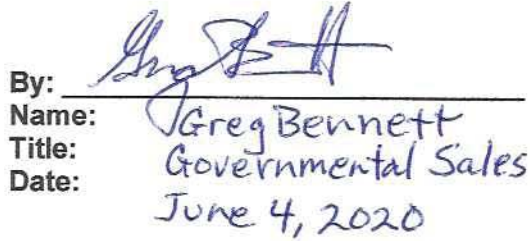 By: Greg Bennett
Name: Greg Bennett
Title: Governmental Sales
Date: June 4, 2020